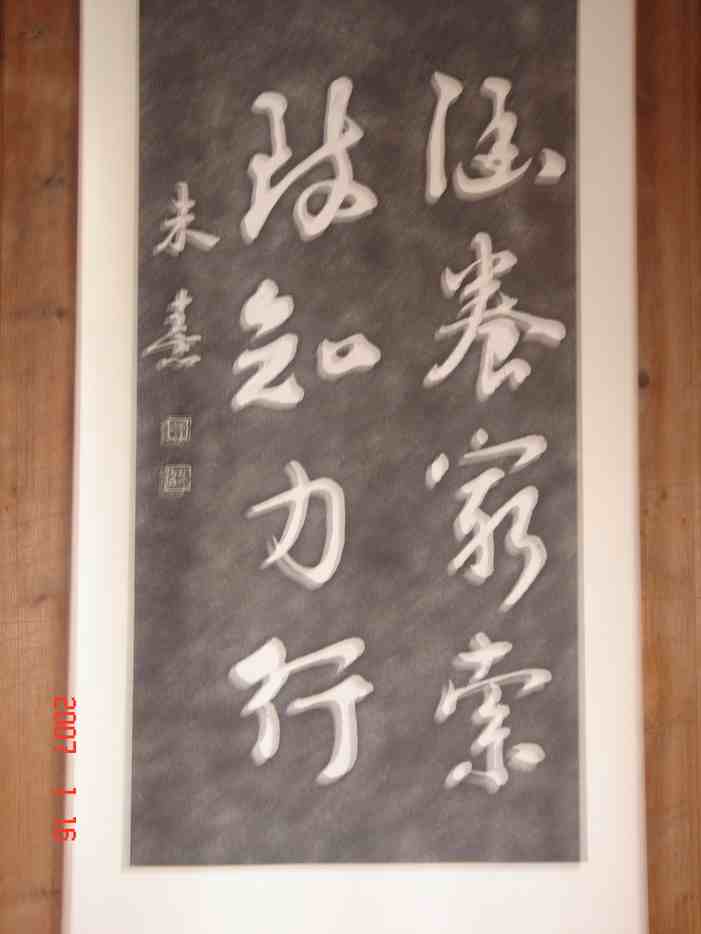 涵養窮索
致知力行
朱熹
2007 1 16